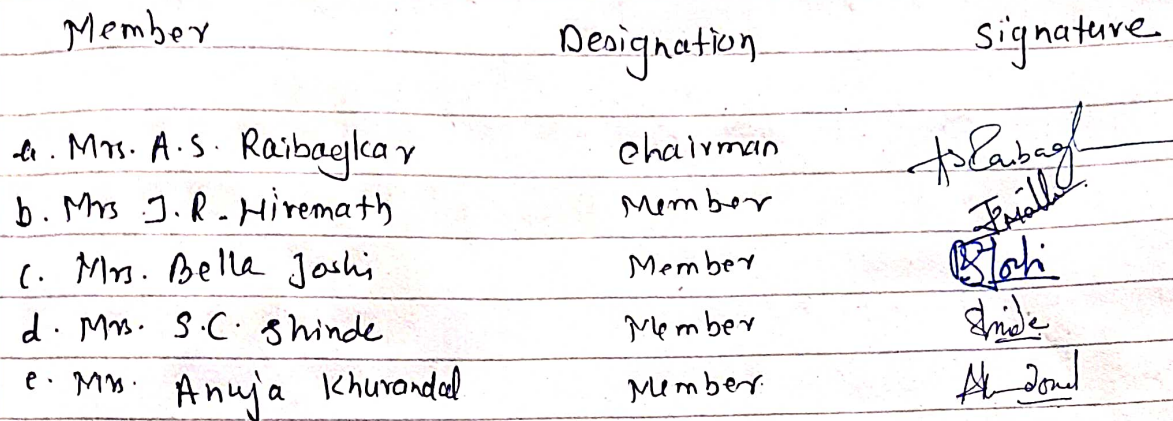 Member Designation Signature
a. Mrs. A.S. Raibagkar Chairman
b. Mrs J.R. Hiremath Member
c. Mrs. Bella Joshi Member
d. Mrs. S.C. Shinde Member
e. Mrs. Anuja Khurandal Member